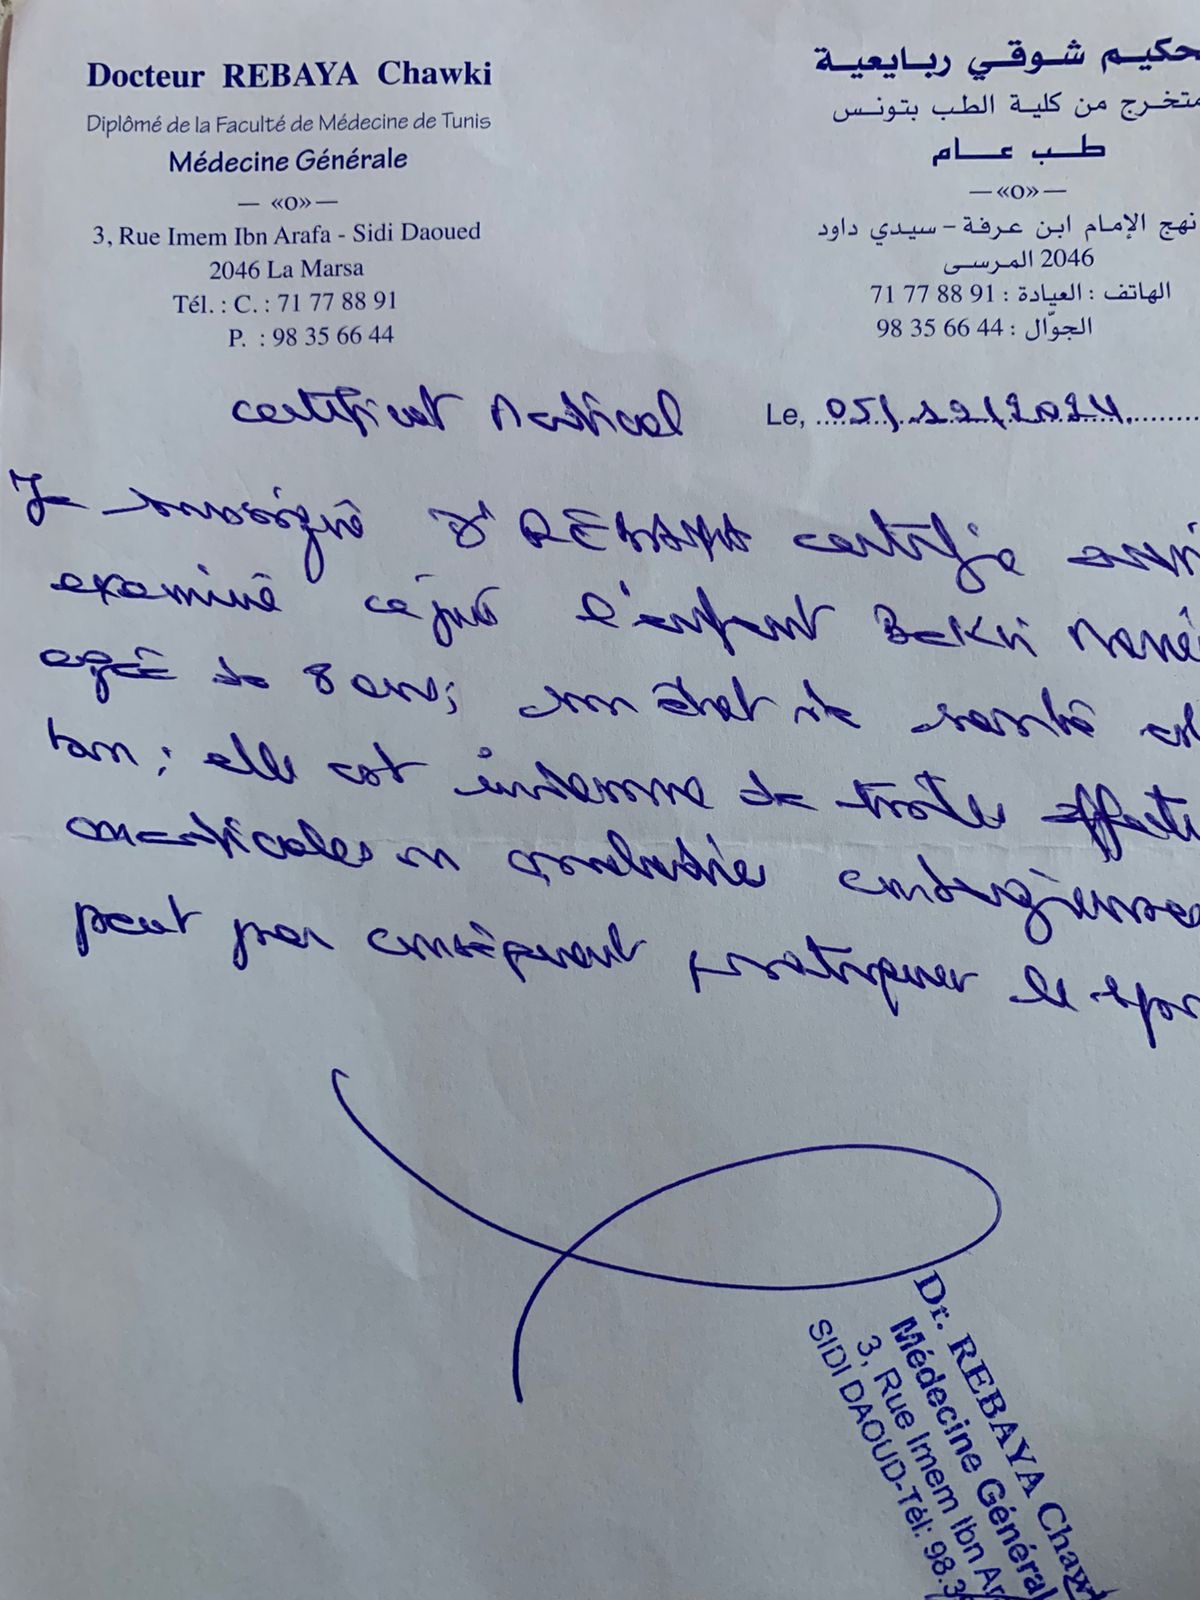 Docteur REBAYA Chawki
Diplômé de la Faculté de Médecine de Tunis
Médecine Générale
— «O» —
3, Rue Imem Ibn Arafa - Sidi Daoued
2046 La Marsa
Tél. : C. : 71 77 88 91
P. : 98 35 66 44
حكيم شوقي ربايعية
متخرج من كلية الطب بتونس
طب عام
— «O» —
نهج الإمام ابن عرفة - سيدي داود
2046 المرسى
الهاتف : العيادة : 71 77 88 91
الجوّال : 98 35 66 44
certificat Médical
Le, 05/12/2024
Je soussigné Dr REBAYA certifie avoir
examiné ce jour l'enfant Bekri
agée de 8 ans; son état de santé est
bon; elle est indemne de toutes affecti
médicales ou maladies contagieuses
peut par conséquent pratiquer le spor
Dr. REBAYA Chaw
Médecine Général
3, Rue Imem Ibn Ar
SIDI DAOUD-Tél: 98.3